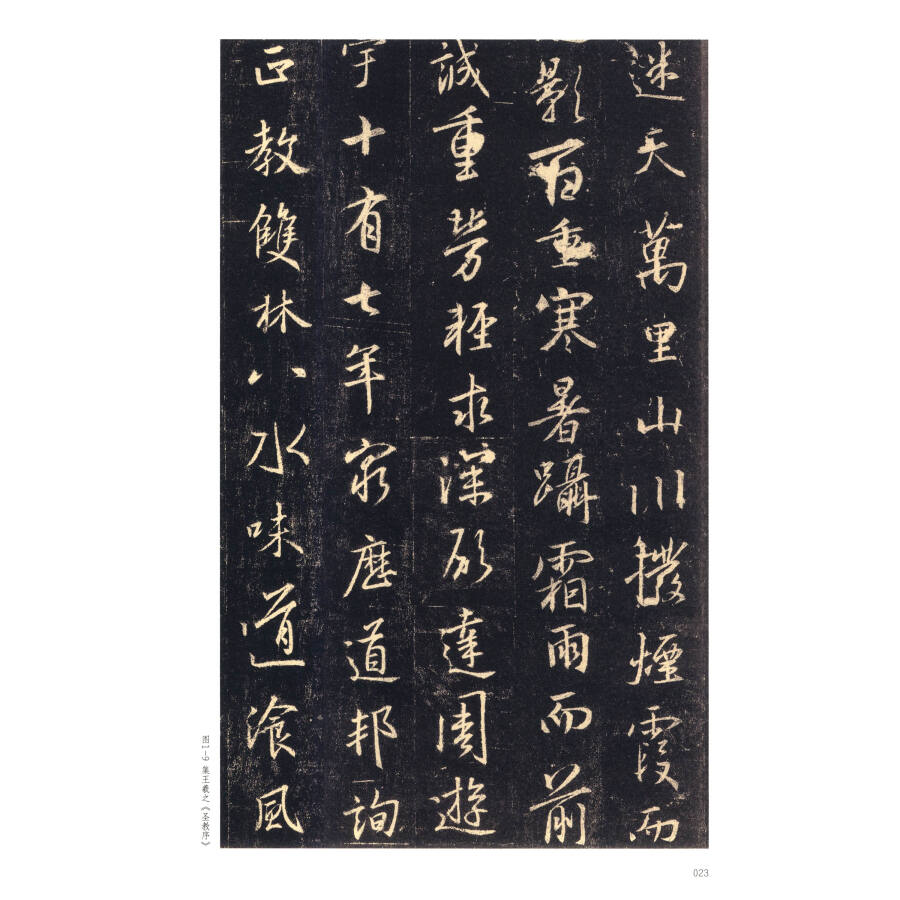 迷天萬里山川撥煙霞而
影百重寒暑躡霜雨而前
誠重勞輕求深願達周遊
宇十有七年窮歷道邦詢
正教雙林八水味道湌風
图1-9 集王羲之《圣教序》
023